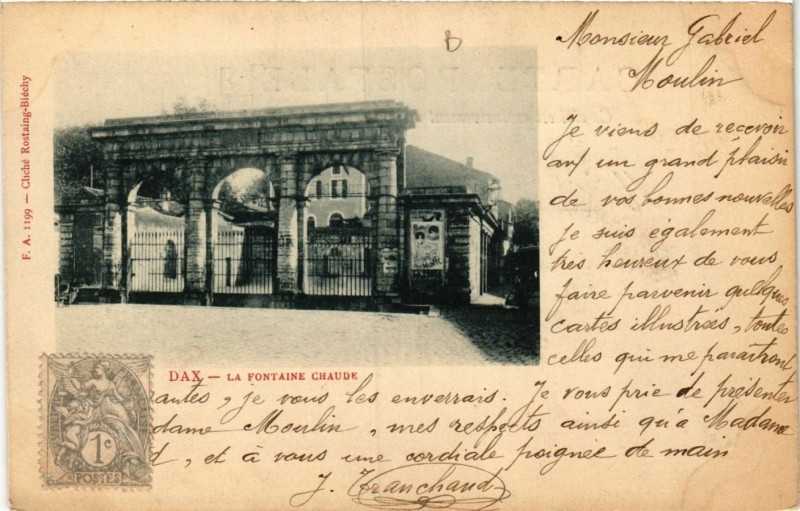 B
Monsieur Gabriel
Moulin
Je viens de recevoir
avec un grand plaisir
de vos bonnes nouvelles
Je suis également
très heureux de vous
faire parvenir quelques
cartes illustrées, toutes
celles qui me paraîtront
rantes, je vous les enverrais. Je vous prie de présenter
dame Moulin, mes respects ainsi qu'à Madame
d, et à vous une cordiale poignée de main
J. Tranchaud
DAX. — LA FONTAINE CHAUDE
F. A. 1199 — Cliché Rostaing-Biéchy
1c
POSTES